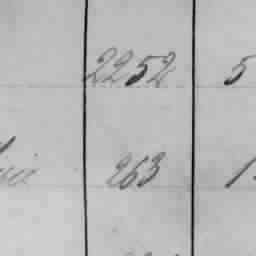 2252 5
263 1